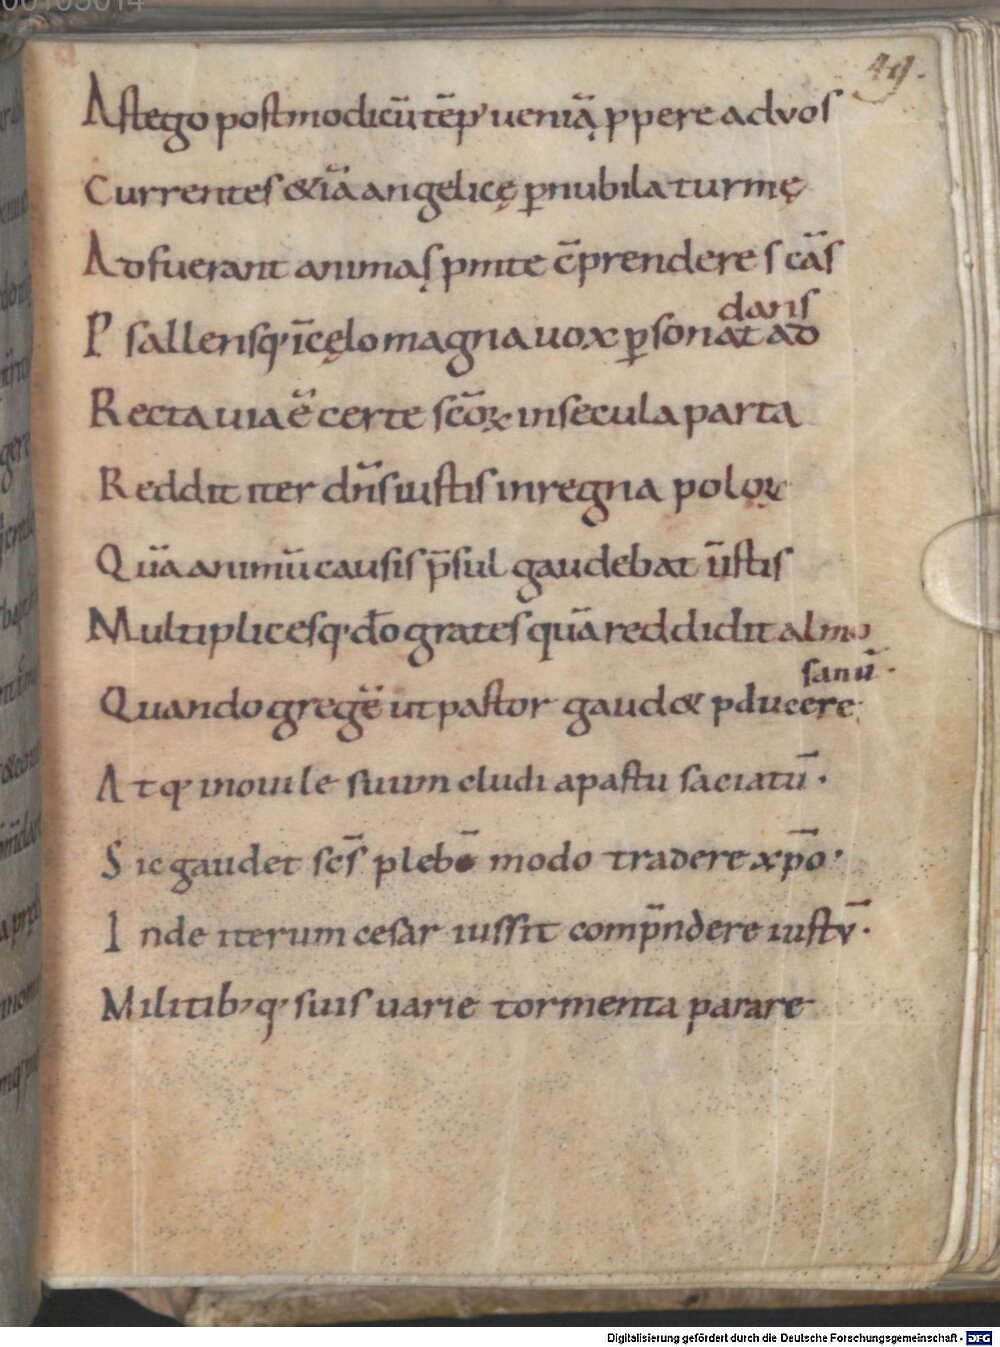 00103014
49.
Astego postmodicū tēp' ueniā, ꝓpere advos
Currentes & iā angelicę ꝑ nubila turmę
Adfuerant animas, ꝓmte c̄prendere s cās
dans
Psallensq· ī cęlo magna uox ꝑsonat ad
Recta uia ē certe sc̄oꝝ in secula parta
Reddit iter dn̄s iustis in regna poloꝝ
Quā animū causis p̄sul gaudebat ūstis
Multiplicesq· dō grates quā reddidit almo
sanū·
Quando gregē ut pastor gaud& ꝓducere
Atq· inouile suum cludi apastu saciatū·
Sic gaudet sc̄s plebē modo tradere xp̄o·
Inde iterum cesar iussit comp̄ndere iustv̄·
Militib; q· suis uarie tormenta parare
Digitalisierung gefördert durch die Deutsche Forschungsgemeinschaft - DFG